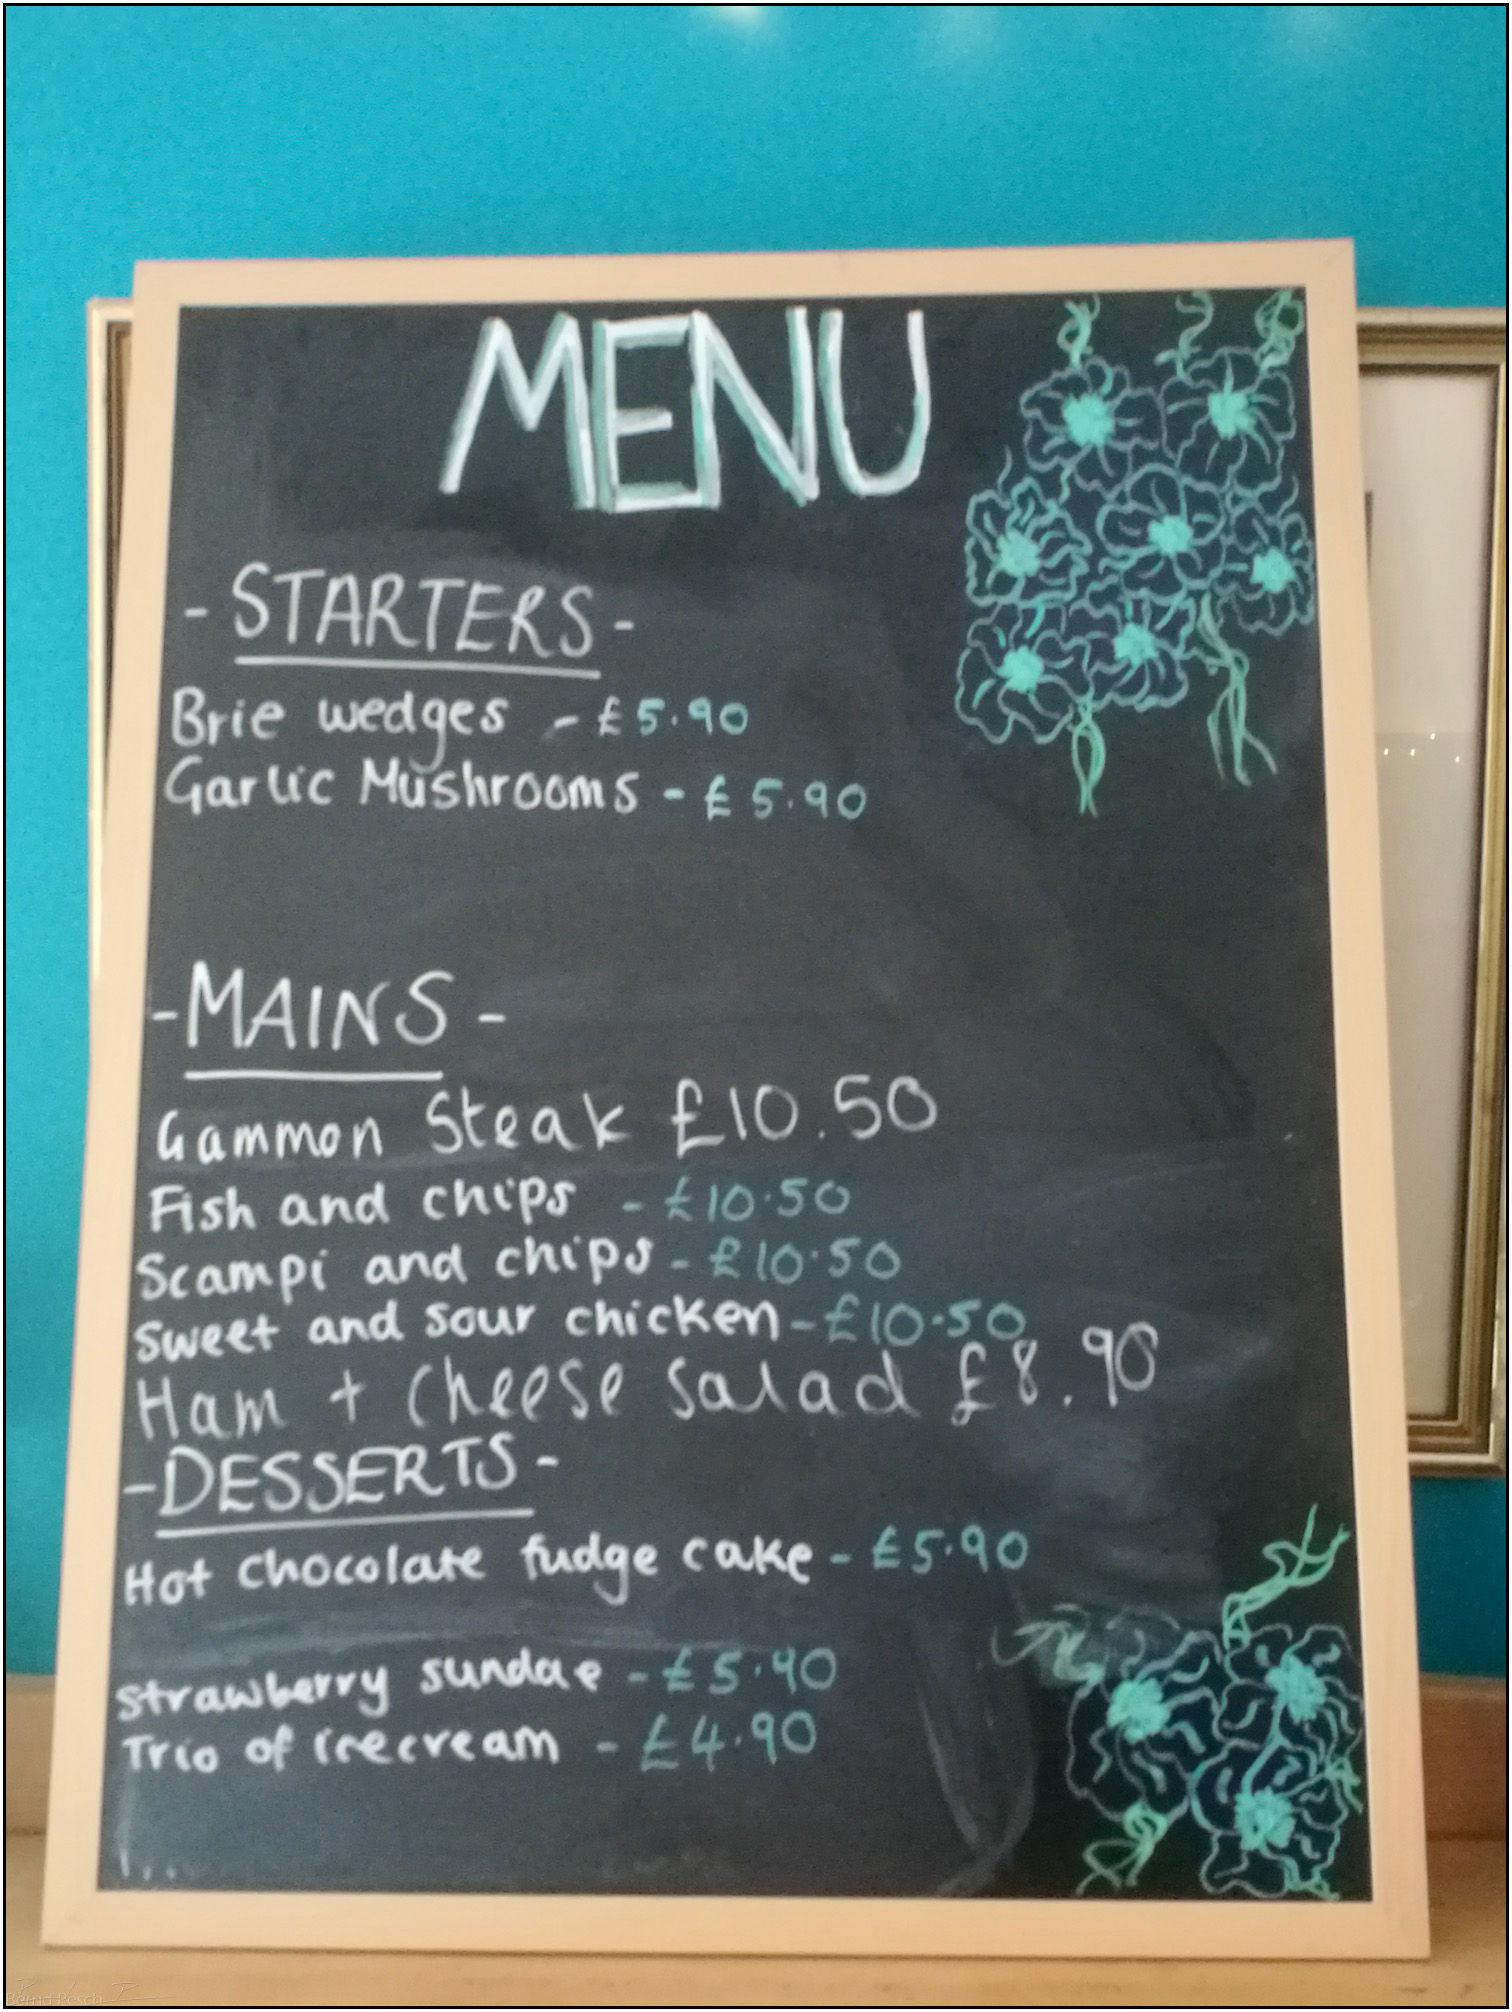 MENU
- STARTERS -
Brie wedges - £5.90
Garlic Mushrooms - £5.90
- MAINS -
Gammon Steak £10.50
Fish and chips - £10.50
Scampi and chips - £10.50
Sweet and sour chicken - £10.50
Ham + Cheese Salad £8.90
- DESSERTS -
Hot chocolate fudge cake - £5.90
Strawberry sundae - £5.90
Trio of icecream - £4.90
Bernd Pesch